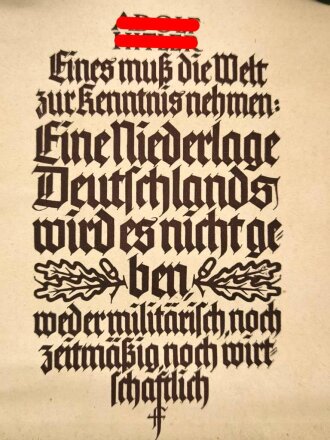 Eines muß die Welt
zur Kenntnis nehmen:
Eine Niederlage
Deutschlands
wird es nicht ge-
ben,
weder militärisch, noch
zeitmäßig noch wirt-
schaftlich